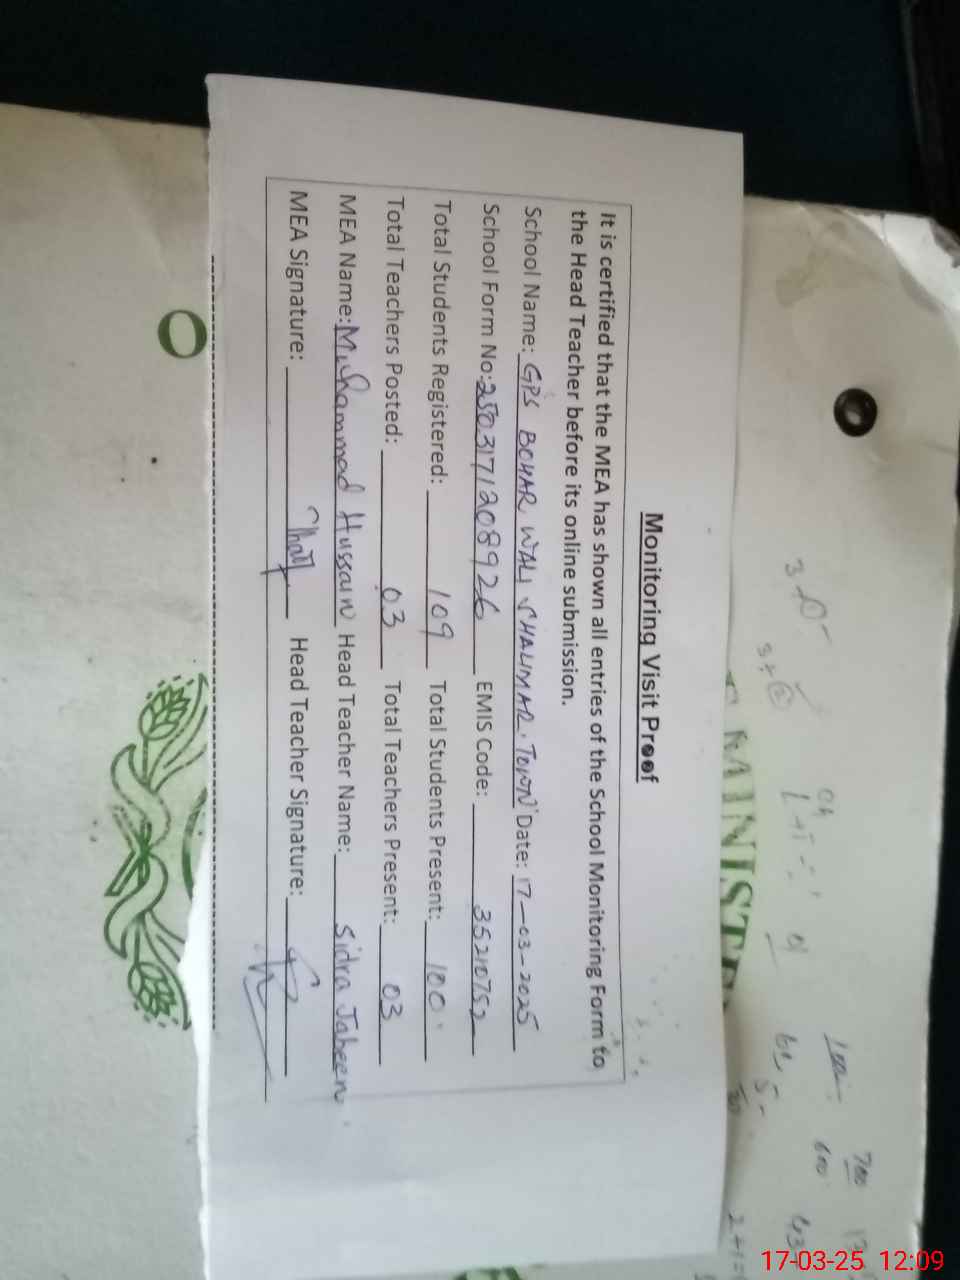 Monitoring Visit Proof
It is certified that the MEA has shown all entries of the School Monitoring Form to
the Head Teacher before its online submission.
School Name: GPS BOHAR WALI SHALIMAR TOWN Date: 17-03-2025
School Form No: 2503171208926 EMIS Code: 35210752
Total Students Registered: 109 Total Students Present: 100
Total Teachers Posted: 03 Total Teachers Present: 03
MEA Name: Muhammad Hussain Head Teacher Name: Sidra Jabeen
MEA Signature: Head Teacher Signature:
MINIST
700
600
17-03-25 12:09